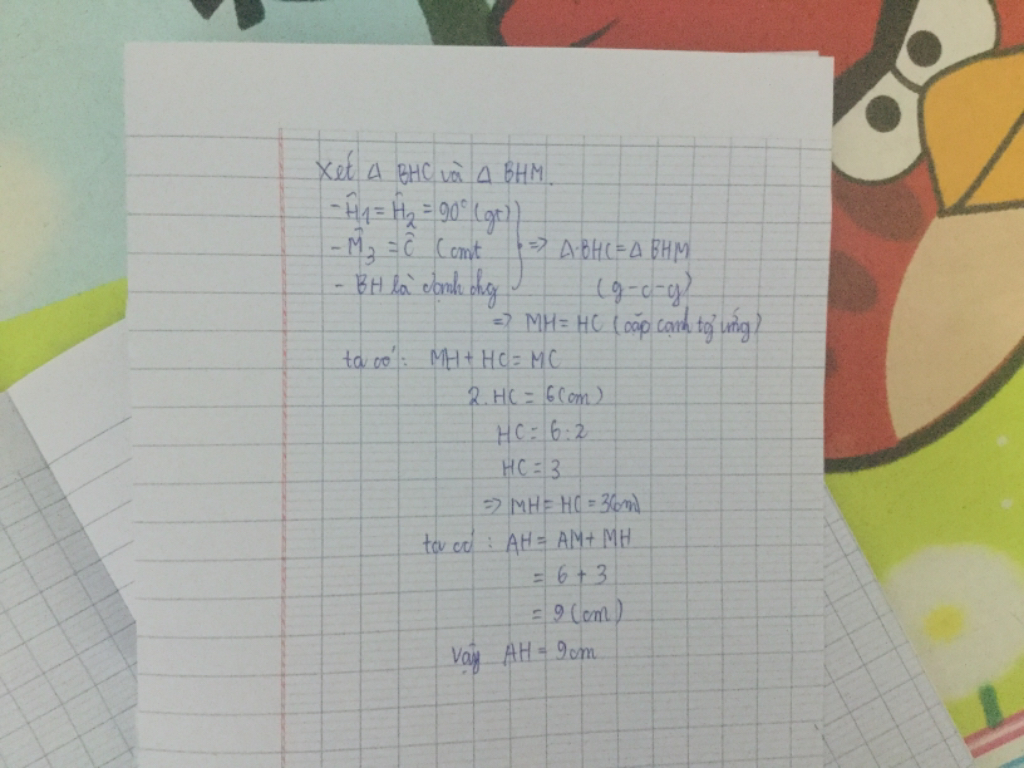 Xét Δ BHC và Δ BHM.
- Ĥ1 = Ĥ2 = 90° (gt)
- M̂3 = Ĉ (cmt => Δ BHC = Δ BHM
- BH là cạnh chg (g-c-g)
=> MH = HC (cặp cạnh tg ứng)
ta có: MH + HC = MC
2. HC = 6 (cm)
HC = 6 : 2
HC = 3
=> MH = HC = 3(cm)
ta có : AH = AM + MH
= 6 + 3
= 9 (cm)
Vậy AH = 9cm